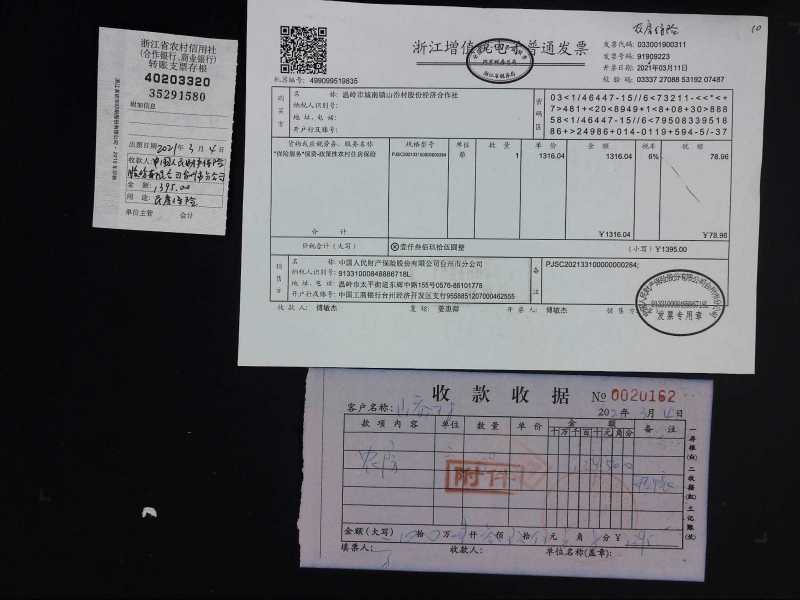 浙江省农村信用社
(合作银行、商业银行)
转账支票存根
40203320
35291580
附加信息
出票日期2021年3月4日
收款人:中国人民财产保险
股份有限公司台州市分公司
金 额:1395.00
用 途:农房保险
单位主管 会计
农房保险
10
浙江增值税电子普通发票
发票代码:033001900311
发票号码:91909223
开票日期:2021年03月11日
校 验 码:03337 27088 53192 07487
机器编号:499099519835
购买方
名 称:温岭市城南镇山岙村股份经济合作社
纳税人识别号:
地 址、电 话:
开户行及账号:
密码区
03<1/46447-15//6<73211-<<*<+
7>481+<20<8949+1<8+08+30>888
58<1/46447-15//6<79508339518
86+>24986+014-0119+594-5/-37
货物或应税劳务、服务名称 规格型号 单位 数 量 单 价 金 额 税率 税 额
*保险服务*保费-政策性农村住房保险 PJSC20213310000000284 1 1316.04 1316.04 6% 78.96
合 计 ¥1316.04 ¥78.96
价税合计(大写) ⊗壹仟叁佰玖拾伍圆整 (小写)¥1395.00
销售方
名 称:中国人民财产保险股份有限公司台州市分公司
纳税人识别号:91331000848886718L
地 址、电 话:温岭市太平街道东辉中路155号0576-86101778
开户行及账号:中国工商银行台州经济开发区支行9558851207000462555
备注
PJSC20213310000000284;
收 款 人: 傅敏杰 复 核: 开 票 人: 傅敏杰 销 售 方:
91331000848886718L
发票专用章
收款收据 №0020162
客户名称:山岙村 202 年3月4日
款项内容 单位 数量 单价 金额 备注
十万千百十元角分
农房
附件
金额(大写) 拾 万 仟 佰 拾 元 角 分 ¥
填票人: 收款人: 单位名称(盖章):
一存根(白) 二收据(红) 三记账(黄)